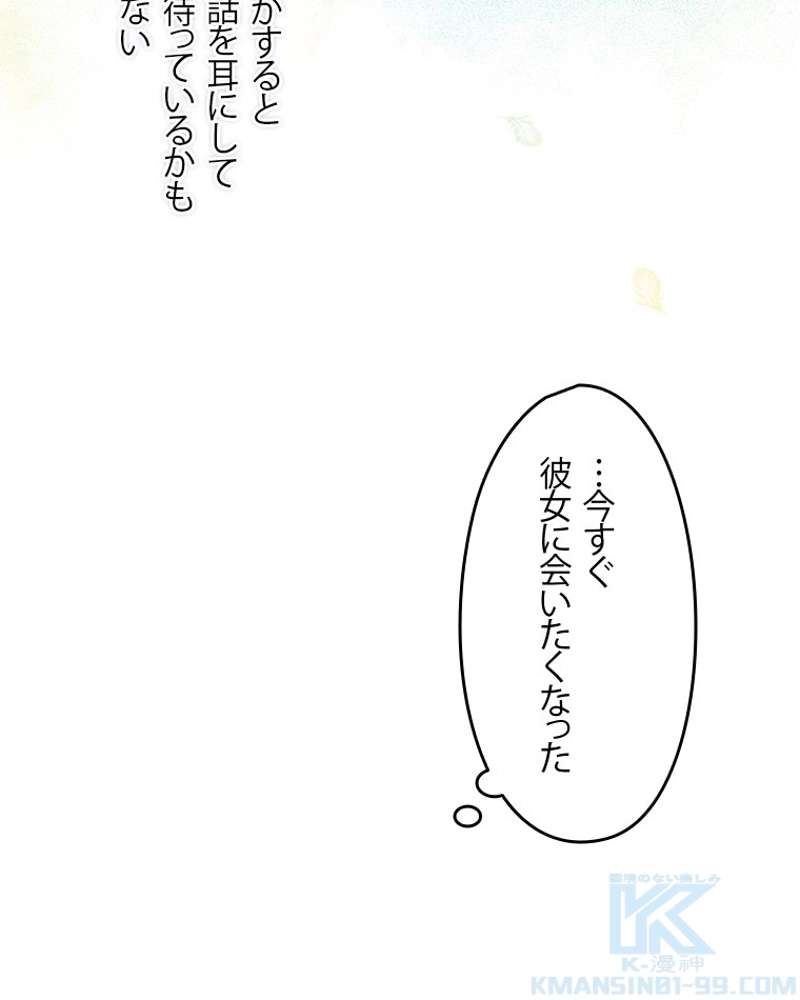 かすると
話を耳にして
待っているかも
ない
…今すぐ
彼女に会いたくなった
K-漫神
KMANSIN01-99.COM